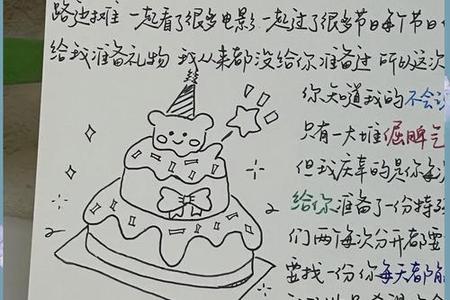 路边摊 一起看了很多电影 一起过了很多节日每个节日
给我准备礼物 我从来都没给你准备过 所以这次
你知道我的不会
只有一大堆倔脾气
但我庆幸的是你每次
给你准备了一份特
们两每次分开都要
要找一份你每天都能